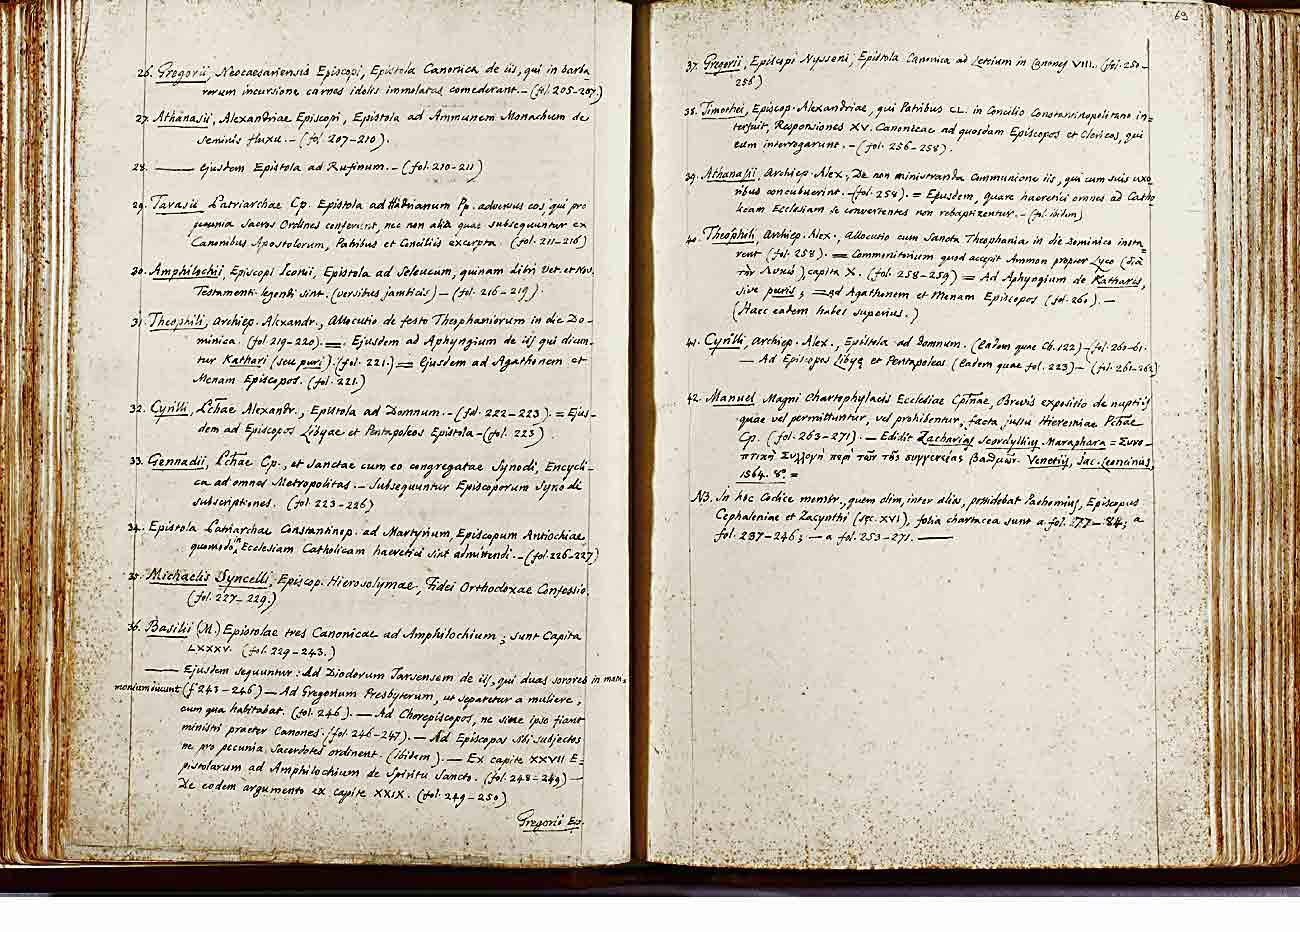 26. Gregorii, Neocaesariensis Episcopi, Epistola Canonica de iis, qui in barba
rorum incursione carnes idolis immolatas comederant. – (fol. 205–207.)
27. Athanasii, Alexandriae Episcopi, Epistola ad Ammunem Monachum de
seminis fluxu. – (fol. 207–210).
28. —— ejusdem Epistola ad Rufinum. – (fol. 210–211)
29. Tarasii Patriarchae Cp. Epistola ad Hadrianum Pp. adversus eos, qui pro
pecunia Sacros Ordines conferunt, nec non alia quae subsequuntur ex
Canonibus Apostolorum, Patribus et Conciliis excerpta. (fol. 211–216)
30. Amphilochii, Episcopi Iconii, Epistola ad Seleucum, quinam libri Vet. et Nov.
Testamenti legendi sint. (versibus jambicis) – (fol. 216–219).
31. Theophili, Archiep. Alexandr., Allocutio de festo Theophaniorum in die Do–
minica. (fol. 219–220). = Ejusdem ad Aphyngium de iis qui dicun–
tur Kathari (seu puri). (fol. 221.) = Ejusdem ad Agathonem et
Menam Episcopos. (fol. 221.)
32. Cyrilli, Pchae Alexandr., Epistola ad Domnum. – (fol. 222–223). = Ejus–
dem ad Episcopos Libyae et Pentapoleos Epistola – (fol. 223)
33. Gennadii, Pchae Cp., et Sanctae cum eo congregatae Synodi, Encycli–
ca ad omnes Metropolitas. – Subsequuntur Episcoporum Synodi
subscriptiones. (fol. 223–226)
34. Epistola Patriarchae Constantinop. ad Martyrium, Episcopum Antiochiae
quomodo in Ecclesiam Catholicam haeretici sint admittendi. – (fol. 226–227)
35. Michaelis Syncelli, Episcop. Hierosolymae, Fidei Orthodoxae Confessio.
(fol. 227–229.)
36. Basilii (M.) Epistolae tres Canonicae ad Amphilochium; sunt Capita
LXXXV. (fol. 229–243.)
—— Ejusdem sequuntur: Ad Diodorum Tarsensem de iis, qui duas sorores in matri=
monium ducunt (f. 243–246) – Ad Gregorium Presbyterum, ut separetur a muliere,
cum qua habitabat. (fol. 246). – Ad Chorepiscopos, ne sine ipso fiant
ministri praeter Canones. (fol. 246–247). – Ad Episcopos sibi subjectos
ne pro pecunia Sacerdotes ordinent. (ibidem). – Ex capite XXVII E=
pistolarum ad Amphilochium de Spiritu Sancto. (fol. 248–249) –
De eodem argumento ex capite XXIX. (fol. 249–250)
Gregorii Ep.
69
37. Gregorii, Episcopi Nysseni, Epistola Canonica ad Letoium in Canones VIII. (fol. 250–
256)
38. Timothei, Episcop. Alexandriae, qui Patribus CL. in Concilio Constantinopolitano in=
terfuit, Responsiones XV. Canonicae ad quosdam Episcopos et Clericos, qui
eum interrogarunt. – (fol. 256–258).
39. Athanasii, Archiep. Alex., De non ministranda Communione iis, qui cum suis uxo
ribus concubuerint. – (fol. 258). = Ejusdem, Quare haeretici omnes ad Catho
licam Ecclesiam se convertentes non rebaptizentur. – (fol. ibidem)
40. Theophili, Archiep. Alex., Allocutio cum Sancta Theophania in die Dominico insta=
rent (fol. 258). = Commonitorium quod accepit Ammon propter Lyco (διὰ
τὴν Λυκώ), capita X. (fol. 258–259) = Ad Aphyngium de Katharis,
sive puris; = ad Agathonem et Menam Episcopos (fol. 260). –
(Haec eadem habes superius.)
41. Cyrilli, Archiep. Alex., Epistola ad Domnum. (Eadem quae fol. 122) – fol. 260–61.
— Ad Episcopos Libyę et Pentapoleos (Eadem quae fol. 223) – (fol. 261–262)
42. Manuel Magni Chartophylacis Ecclesiae Cptnae, Brevis expositio de nuptiis
quae vel permittuntur, vel prohibentur, facta jussu Hieremiae Pchae
Cp. (fol. 263–271). – Edidit Zacharias Scordyllius Maraphara = Συνο–
πτικὴ Συλλογὴ περὶ τῶν τῆς συγγενείας βαθμῶν. Venetiis, Jac. Leoncinus,
1564. 8°. =
NB. In hoc Codice membr., quem olim, inter alios, possidebat Pachomius, Episcopus
Cephaleniae et Zacynthi (sęc. XVI), folia chartacea sunt a fol. 77–84; a
fol. 237–246; – a fol. 253–271. ——